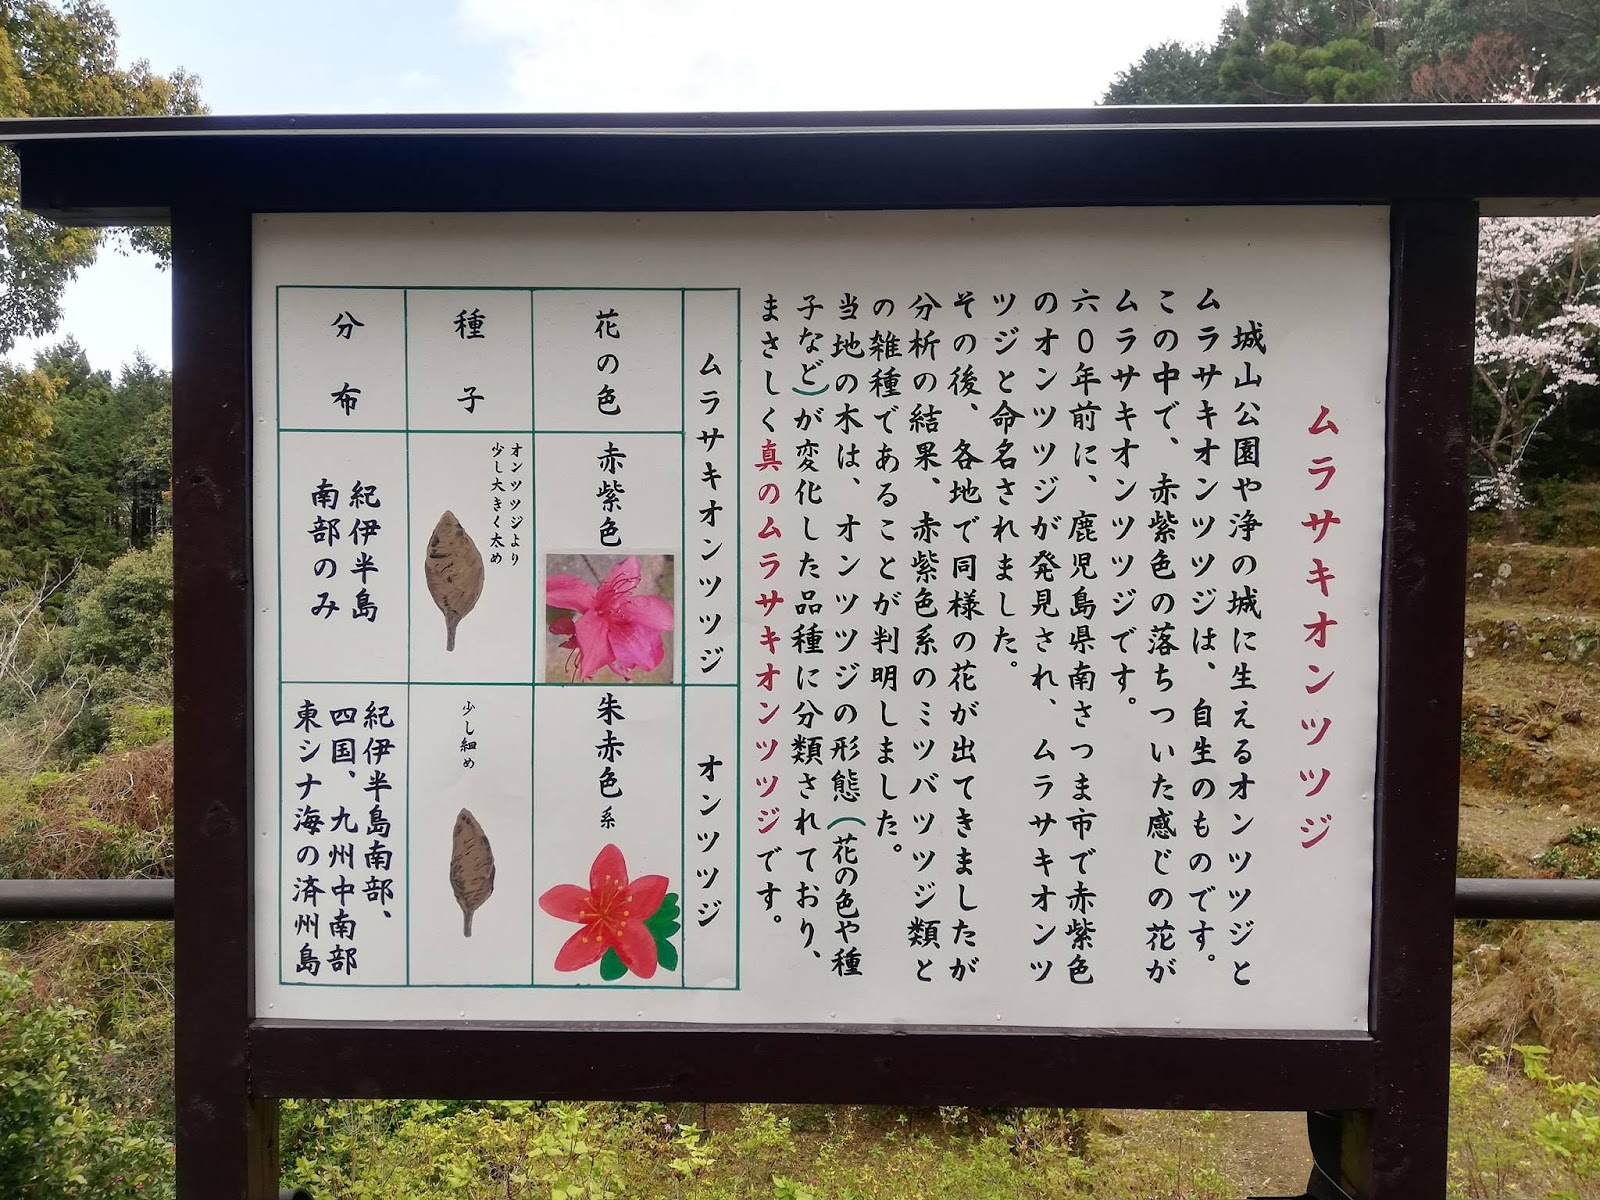 ムラサキオンツツジ
城山公園や浄の城に生えるオンツツジと
ムラサキオンツツジは、自生のものです。
この中で、赤紫色の落ちついた感じの花が
ムラサキオンツツジです。
六〇年前に、鹿児島県南さつま市で赤紫色
のオンツツジが発見され、ムラサキオンツ
ツジと命名されました。
その後、各地で同様の花が出てきましたが
分析の結果、赤紫色系のミツバツツジ類と
の雑種であることが判明しました。
当地の木は、オンツツジの形態(花の色や種
子など)が変化した品種に分類されており、
まさしく真のムラサキオンツツジです。
ムラサキオンツツジ
オンツツジ
花の色
赤紫色
朱赤色系
種子
オンツツジより
少し大きく太め
少し細め
分布
紀伊半島
南部のみ
紀伊半島南部、
四国、九州中南部
東シナ海の済州島